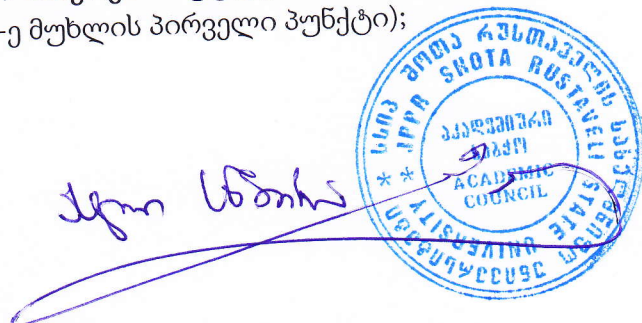 -ე მუხლის პირველი პუნქტი);
სსიპ შოთა რუსთაველის სახელმწიფო უნივერსიტეტი
JPPR SHOTA RUSTAVELI STATE UNIVERSITY
აკადემიური
საბჭო
ACADEMIC
COUNCIL